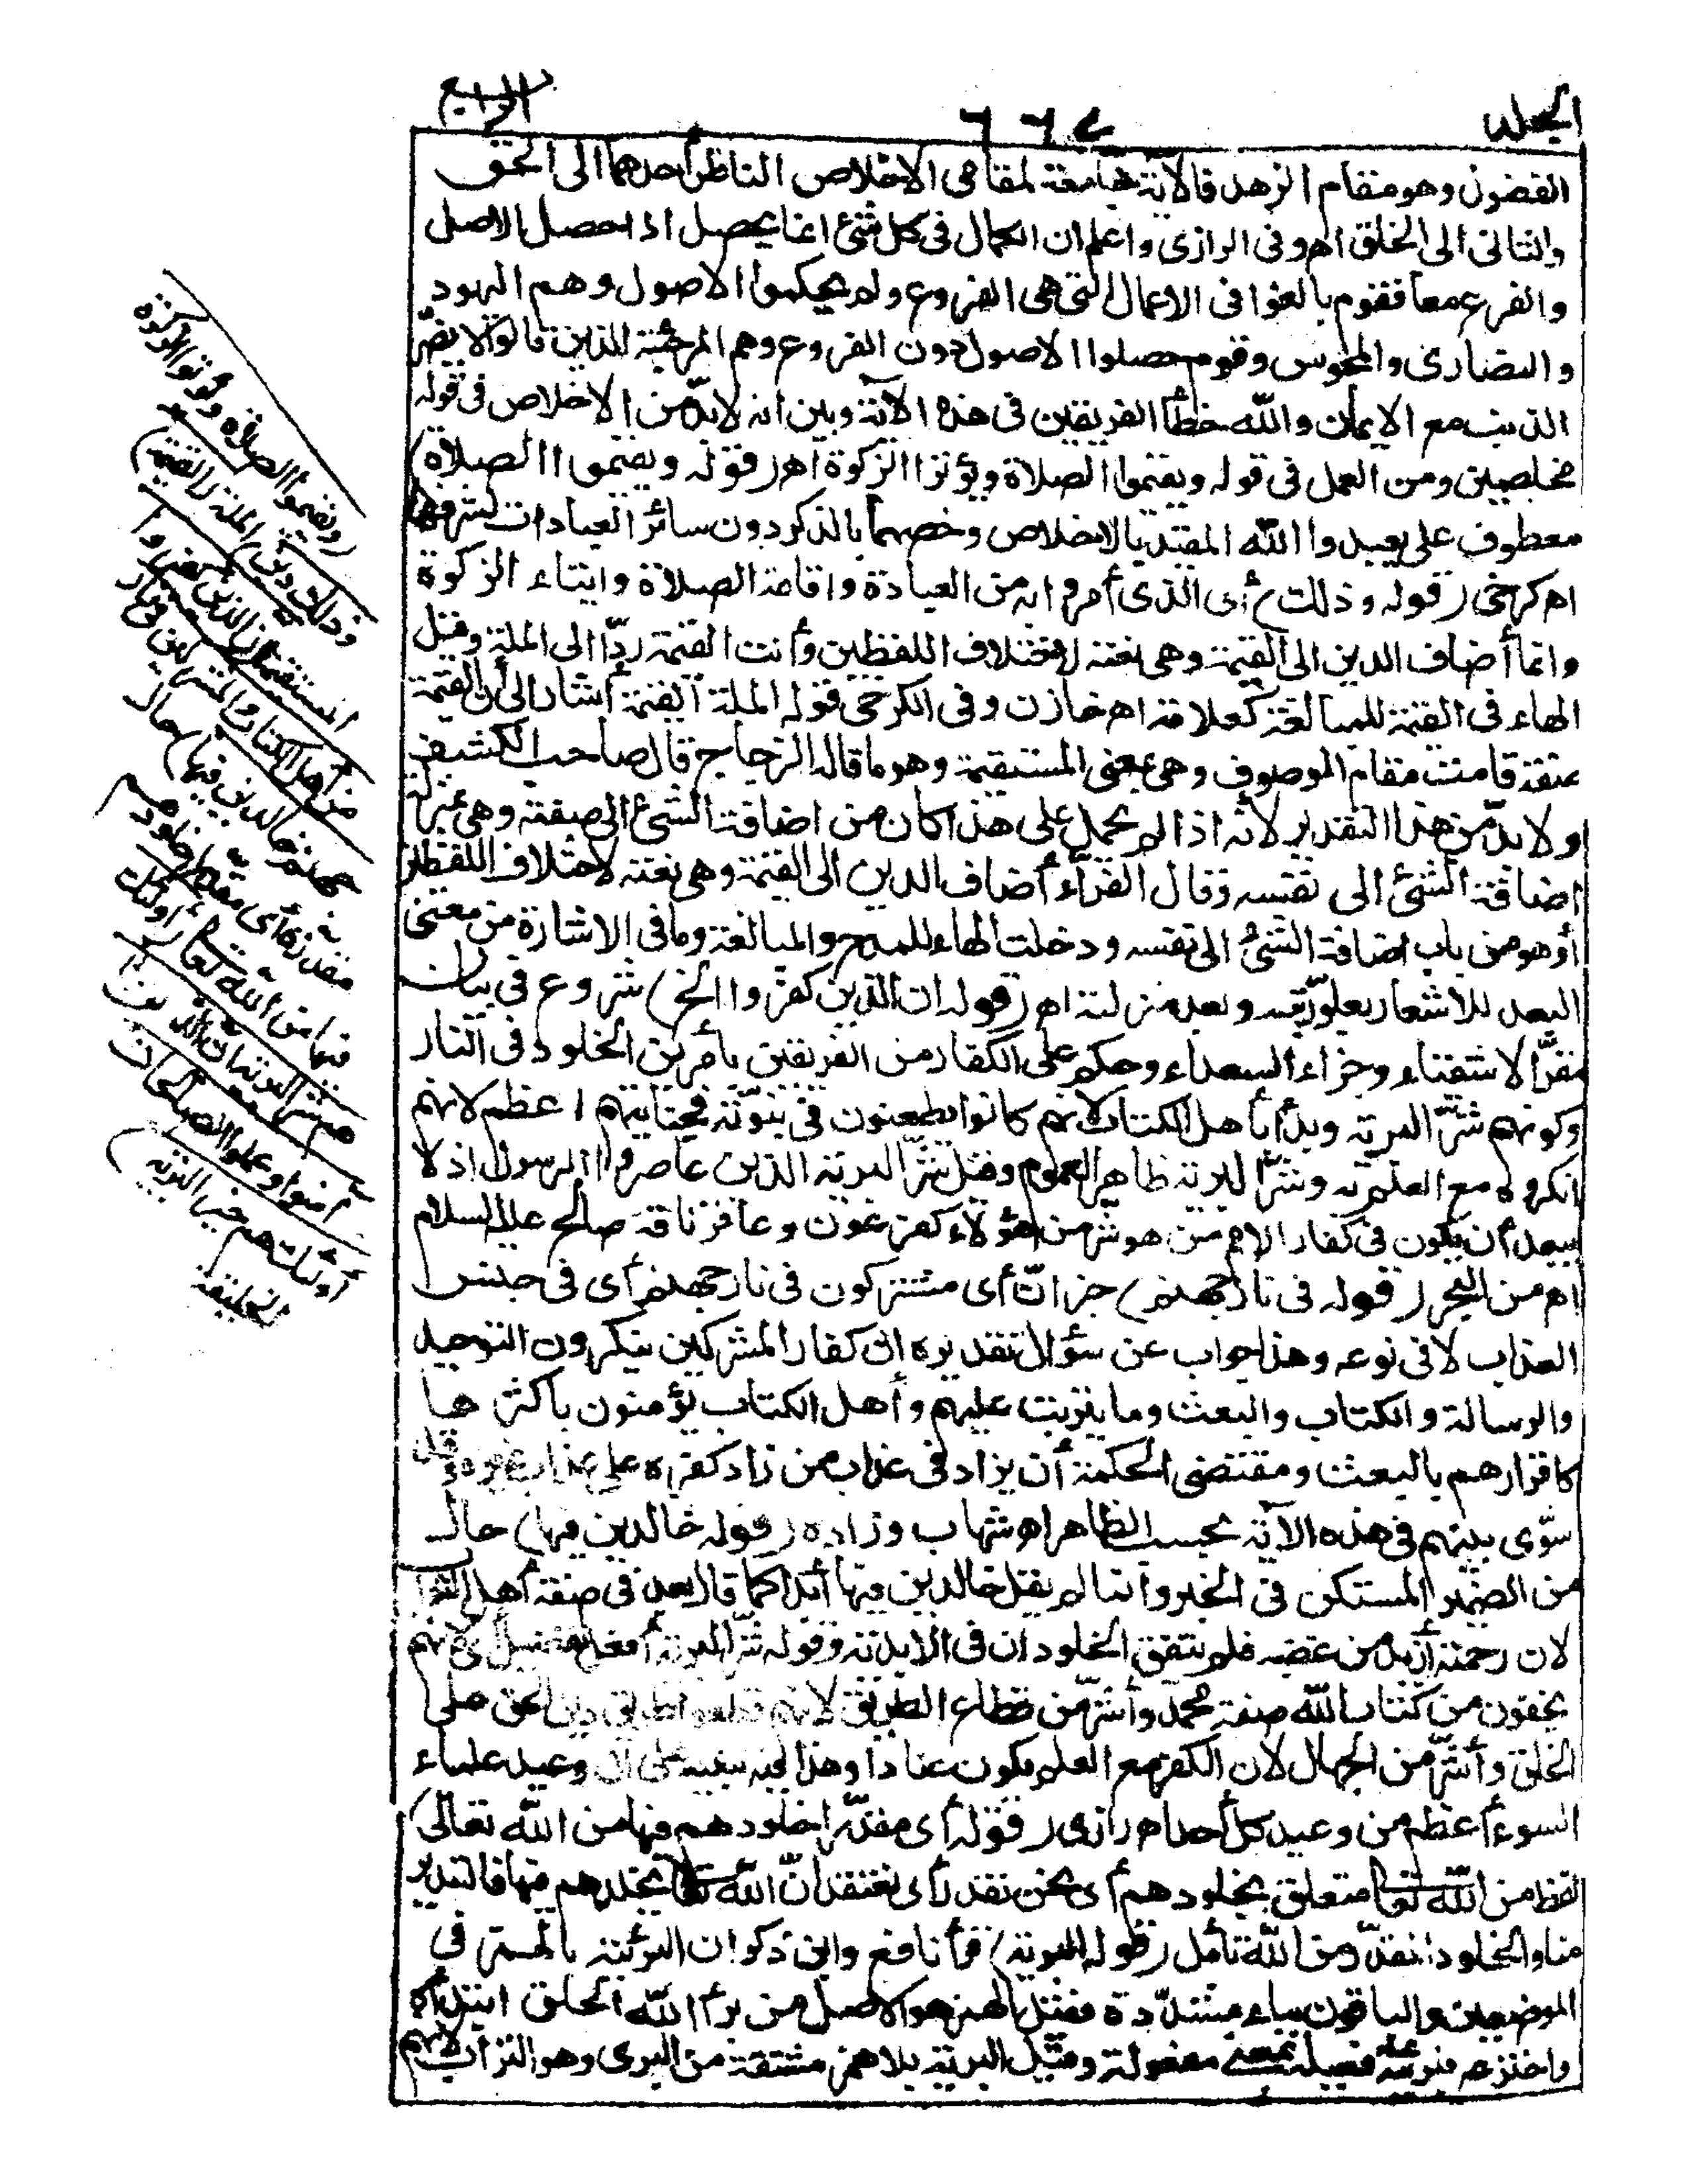 الجلد
٦٦٧
الرابع
الفضول وهو مقام الزهد فالآية جامعة لمقامى الاخلاص الناظر أحدهما الى الحق
والثانى الى الخلق اهـ وفى الرازى واعلم ان الكمال فى كل شئ انما يحصل اذا حصل الاصل
والفرع معا فقوم بالغوا فى الاعمال التى هى الفروع ولم يحكموا الاصول وهم اليهود
والنصارى والمجوس وقوم حصلوا الاصول دون الفروع وهم المرجئة الذين قالوا لا يضر
الذنب مع الايمان والله خطأ الفريقين فى هذه الآية وبين انه لابد من الاخلاص فى قوله
مخلصين ومن العمل فى قوله ويقيموا الصلاة ويؤتوا الزكوة اهـ (قوله ويقيموا الصلاة)
معطوف على يعبدوا الله المقيد بالاخلاص وخصهما بالذكر دون سائر العبادات لشرفهما
اهـ كرخى (قوله وذلك) أى الذى أمروا به من العبادة واقامة الصلاة وايتاء الزكوة
وانما أضاف الدين الى القيمة وهى نعته لاختلاف اللفظين وأنث القيمة ردّا الى الملة وقيل
الهاء فى القيمة للمبالغة كعلامة اهـ خازن وفى الكرخى قوله الملة القيمة أشار الى أن القيمة
صفة قامت مقام الموصوف وهى بمعنى المستقيمة وهو ما قاله الزجاج قال صاحب الكشف
ولا بدّ من هذا التقدير لأنه اذا لم يحمل على هذا كان من اضافة الشئ الى صفته وهى بمنزلة
اضافة الشئ الى نفسه وقال الفرّاء أضاف الدين الى القيمة وهى نعته لاختلاف اللفظين
أو هو من باب اضافة الشئ الى نفسه ودخلت الهاء للمدح والمبالغة وما فى الاشارة من معنى
البعد للأشعار بعلو رتبته وبعد منزلته اهـ (قوله ان الذين كفروا الخ) شروع فى بيان
مقرّ الاشقياء وجزاء السعداء وحكم على الكفار من الفريقين بأمرين الخلود فى النار
وكونهم شرّ البرية وبدأ بأهل الكتاب لانهم كانوا يطعنون فى نبوّته فجنايتهم أعظم لانهم
أنكروه مع العلم به وشرّ البرية ظاهره العموم وقيل شرّ البرية الذين عاصروا الرسول اذ لا
يبعد أن يكون فى كفار الامم من هو شر من هؤلاء كفرعون وعاقر ناقة صالح عليه السلام
اهـ من البحر (قوله فى نار جهنم) خبر ان أى مشتركون فى نار جهنم أى فى جنس
العذاب لا فى نوعه وهذا جواب عن سؤال تقديره ان كفار المشركين ينكرون التوحيد
والرسالة والكتاب والبعث وما يترتب عليهم وأهل الكتاب يؤمنون باكثرها
كاقرارهم بالبعث ومقتضى الحكمة أن يزاد فى عذاب من زاد كفره على عذاب غيره وقد
سوّى بينهم فى هذه الآية بحسب الظاهر اهـ شهاب وزاده (قوله خالدين فيها) حال
من الضمير المستكن فى الخبر وانما لم يقل خالدين فيها أبدا كما قال بعد فى صفة أهل الثواب
لان رحمته أزيد من غضبه فلم يتفق الخلودان فى الابدية وقوله شرّ البرية أفعل تفضيل لانهم
يخفون من كتاب الله صفة محمد وأشرّ من قطاع الطريق لانهم قطعوا طريق دين الحق على
الخلق وأشرّ من الجهال لان الكفر مع العلم يكون عنادا وهذا فيه تنبيه على ان وعيد علماء
السوء أعظم من وعيد كل أحد اهـ رازى (قوله أى مقدّرا خلودهم فيها من الله تعالى)
لفظ من الله تعا متعلق بخلودهم أى نحن نقدر أى نعتقد أنّ الله تعا يخلدهم فيها فالتقدير
منا والخلود من الله تأمل (قوله البرية) قرأ نافع وابن ذكوان البرئية بالهمز فى
الموضعين والباقون بياء مشدّدة فقيل بالهمز هو الاصل من برأ الله الخلق ابتدأه
واخترعه فهو فعيلة بمعنى مفعولة وقيل البرية بلا همز مشتقة من البرى وهو التراب لانهم
(ويقيموا الصلاة ويؤتوا الزكوة
وذلك دين) الملة (القيمة)
المستقيمة (ان الذين كفروا
من أهل الكتاب والمشركين فى نار
جهنم خالدين فيها) حال
مقدرة أى مقدرا خلودهم
فيها من الله تعا (أولئك
هم شر البرية ان الذين
آمنوا وعملوا الصالحات
أولئك هم خير البرية)
الخليقة